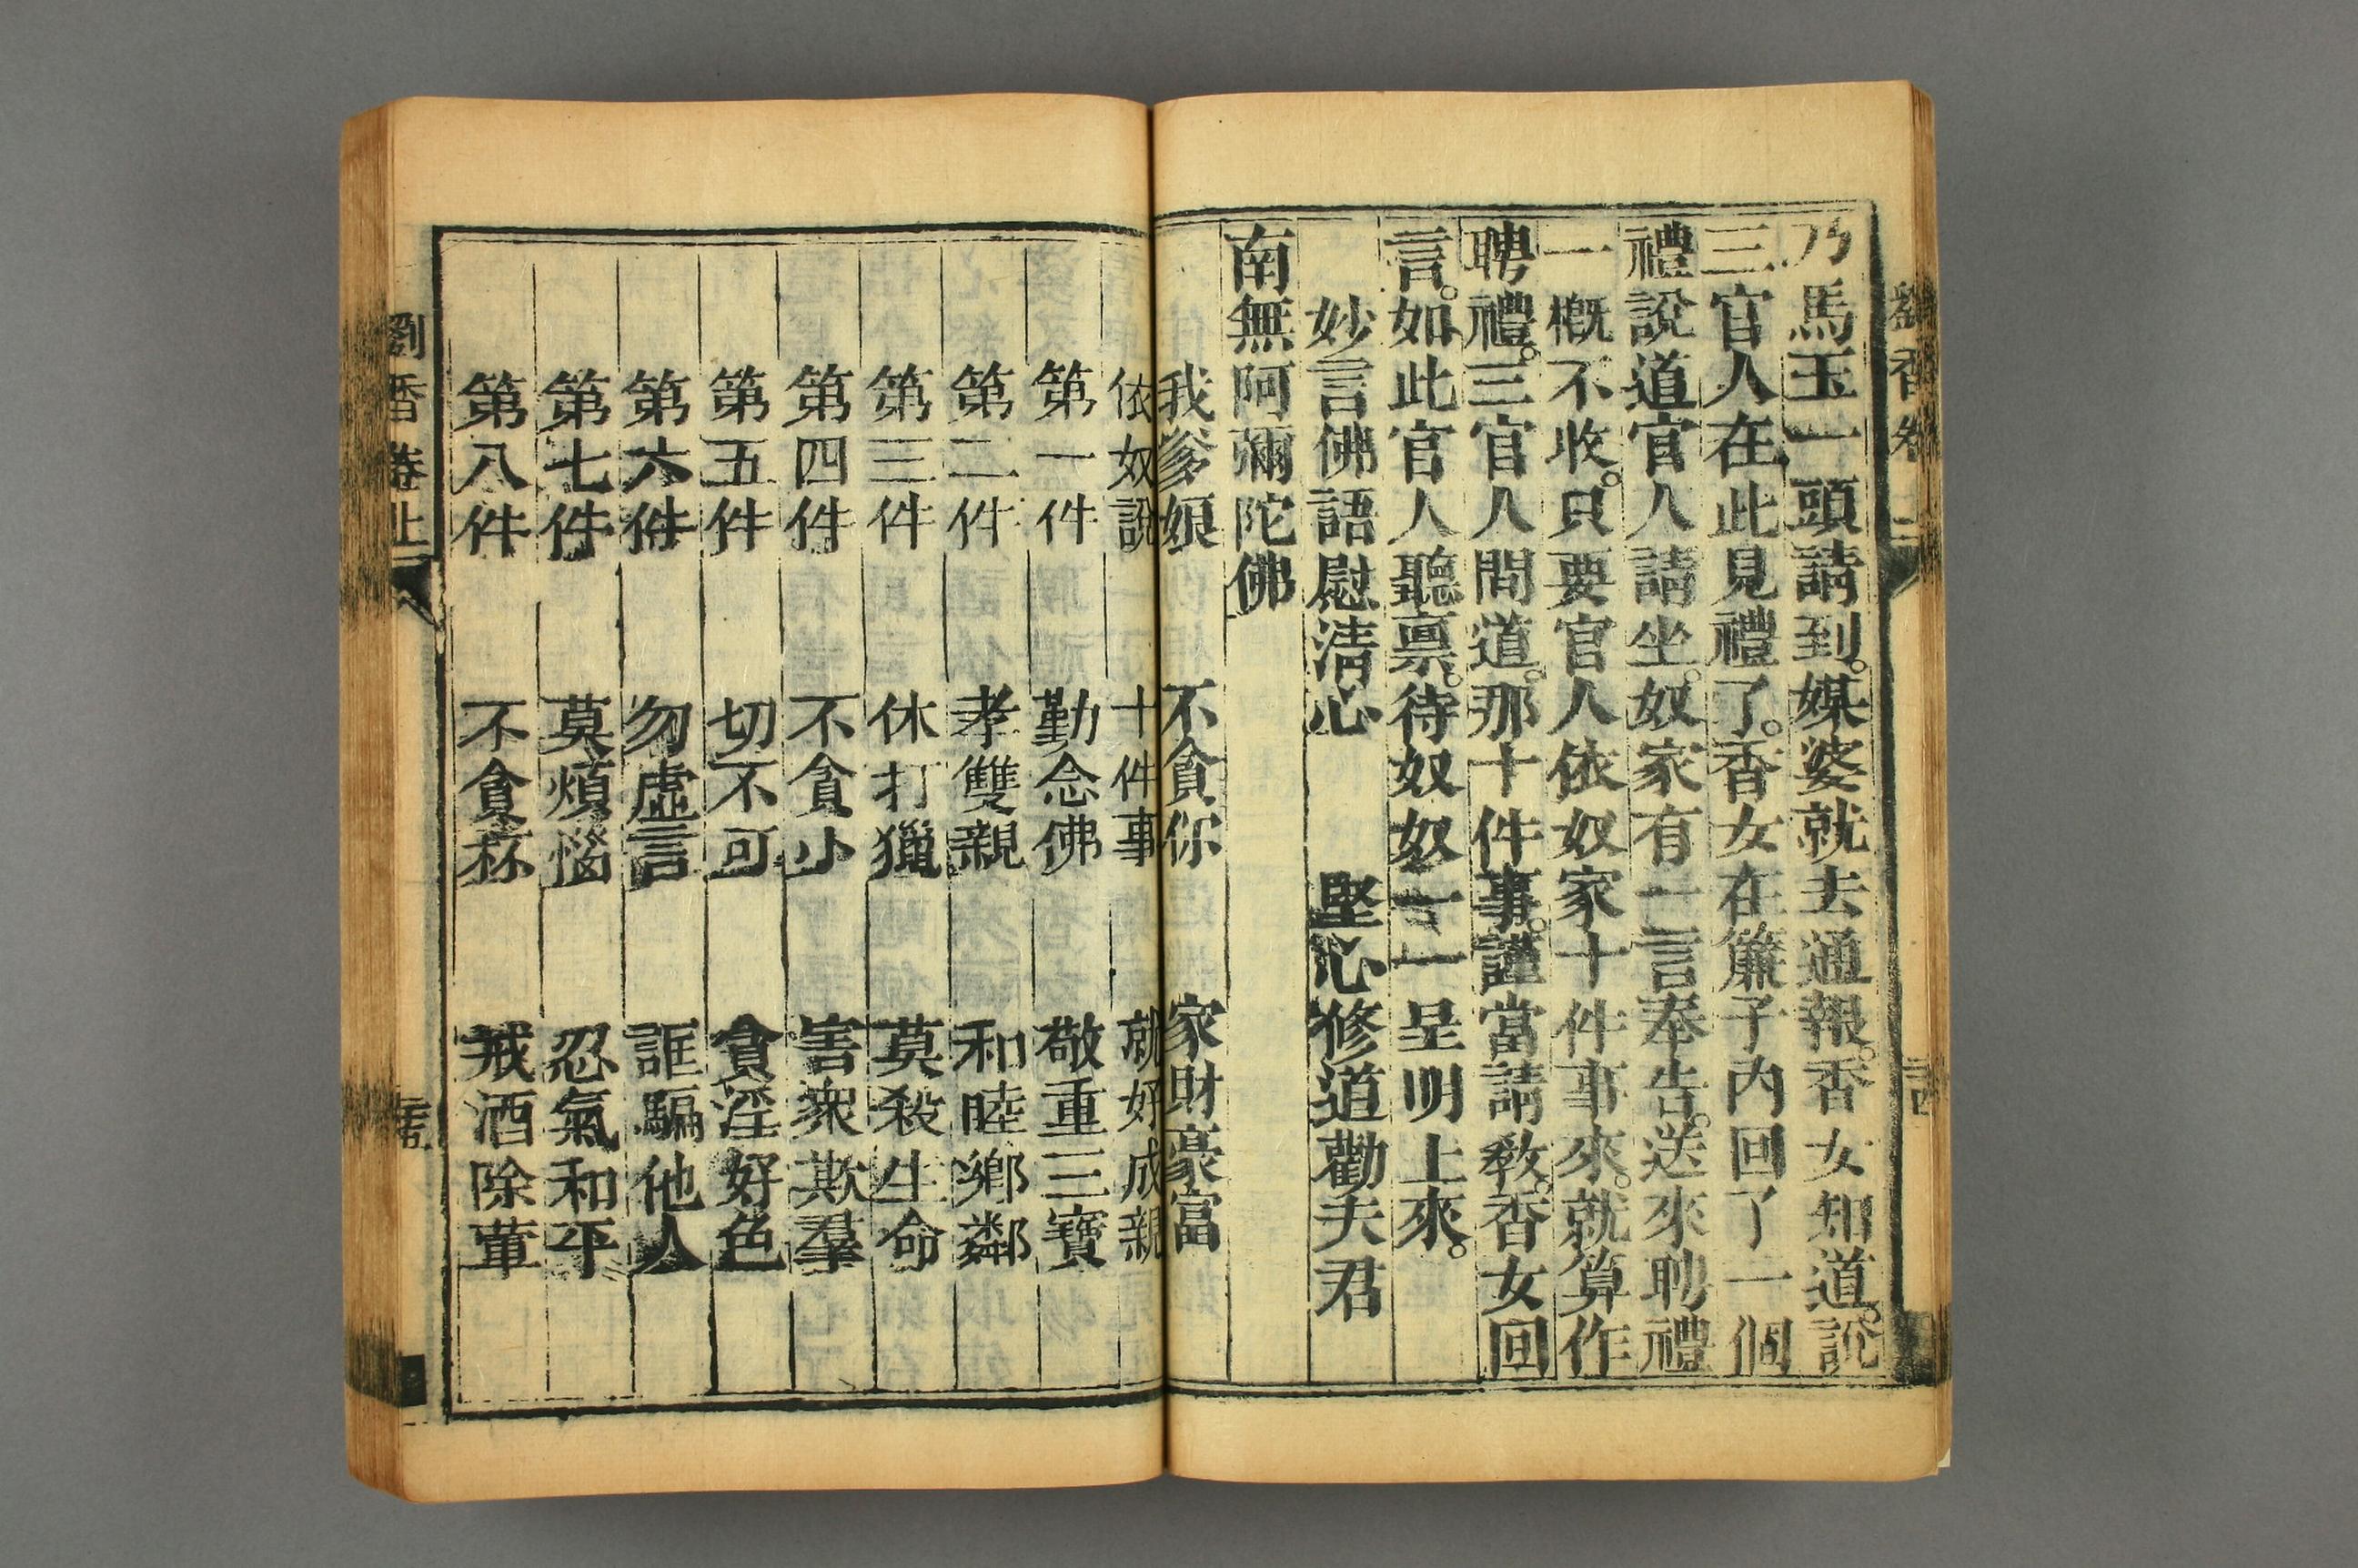 乃馬玉一頭請到。媒婆就去通報。香女知道。說
三官人在此見禮了。香女在簾子內回了一個
禮說道官人請坐。奴家有一言奉告。送來聘禮
一概不收。只要官人依奴家十件事來。就算作
聘禮。三官人間道。那十件事。謹當請教。香女回
言。如此官人聽禀。待奴奴一一呈明上來。
妙言佛語慰淸心　堅心修道勸夫君
南無阿彌陀佛
我爹娘　不貪你　家財豪富
依奴說　十件事　就好成親
第一件　勤念佛　敬重三寶
第二件　孝雙親　和睦鄉鄰
第三件　休打獵　莫殺生命
第四件　不貪小　害衆欺羣
第五件　切不可　貪淫好色
第六件　勿虛言　誆騙他人
第七件　莫煩惱　忍氣和平
第八件　不貪杯　戒酒除葷
劉香卷上